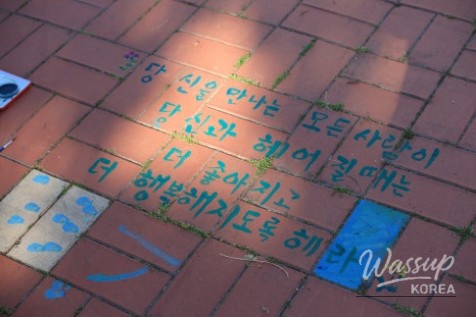 당신을 만나는 모든 사람이
당신과 헤어질 때는
더 좋아지고
더 행복해지도록 해라
Wassup
KOREA